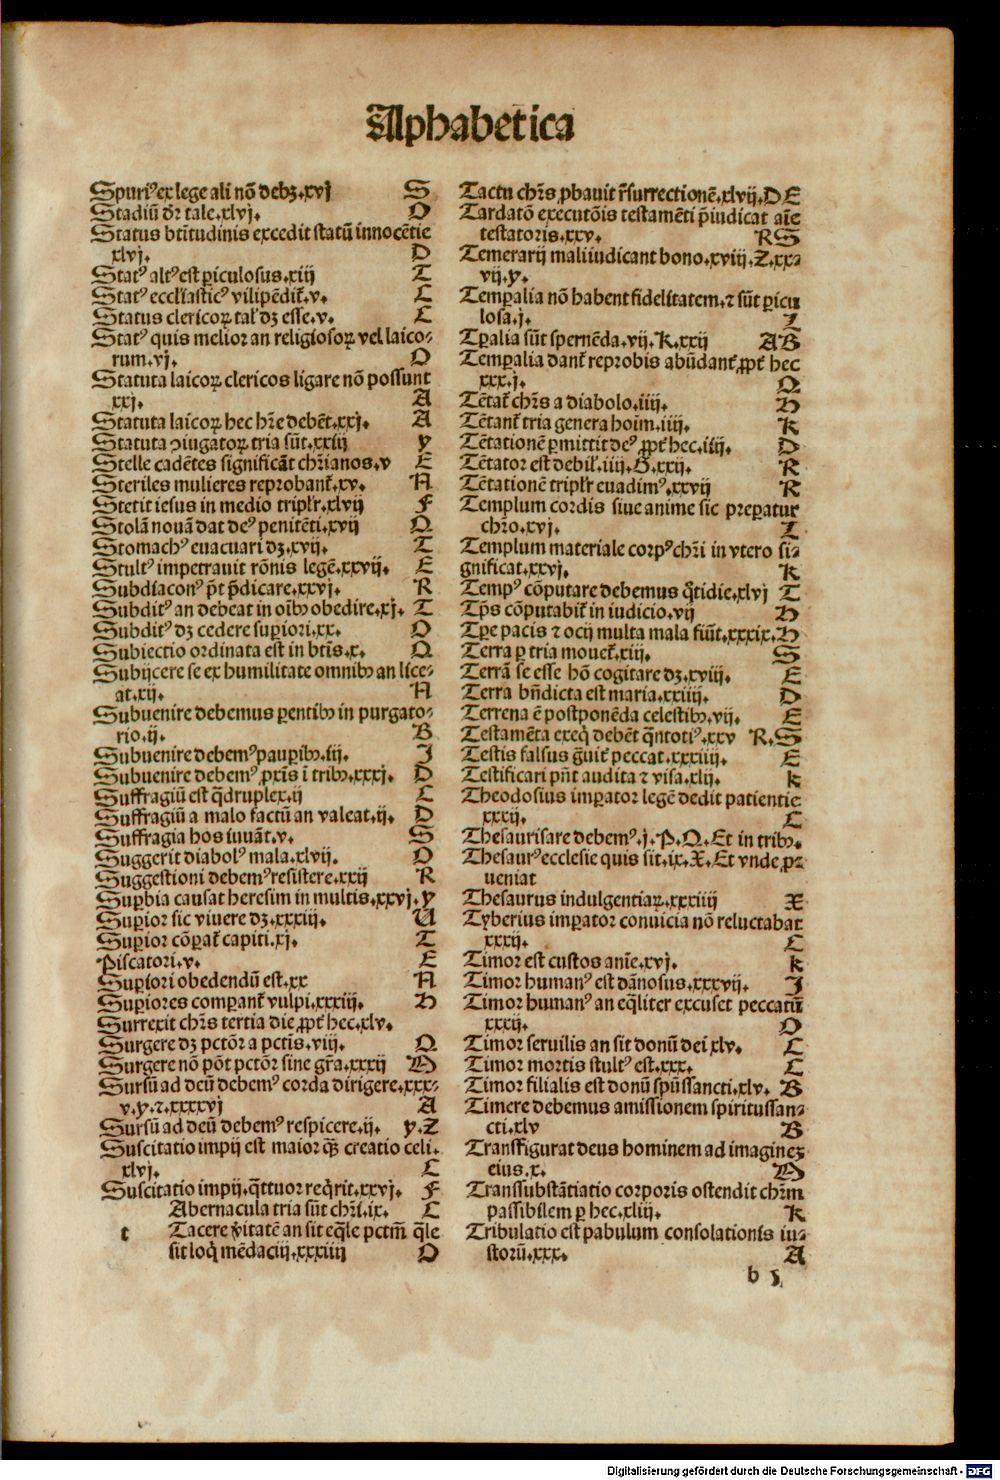 Alphabetica
Spuriꝰ ex lege ali nō debꝫ.xvj S
Stadiū dr̄ tale.xlvj. O
Status btītudinis excedit statū innocētie
xlvj. D
Statꝰ altꝰ est ꝑiculosus.xiij T
Statꝰ eccl'iasticꝰ vilipēdit̄.v. C
Status clericoꝝ tal' dꝫ esse.v. C
Statꝰ quis melior an religiosoꝝ vel laico-
rum.vj. O
Statuta laicoꝝ clericos ligare nō possunt
xxj. A
Statuta laicoꝝ hec hr̄e debēt.xxj. A
Statuta ꝯiugatoꝝ tria sūt.xxiij y
Stelle cadētes significāt chr̄ianos.v E
Steriles mulieres reprobant̄.xv. N
Stetit iesus in medio tripl'r.xlvij F
Stolā nouā dat deꝰ penitēti.xvij Q
Stomachꝰ euacuari dꝫ.xvij. T
Stultꝰ impetrauit rōnis legē.xxvij. E
Subdiaconꝰ p̄t p̄dicare.xxvj. R
Subditꝰ an debeat in oībꝰ obedire.xj. T
Subditꝰ dꝫ cedere suꝑiori.xx. O
Subiectio ordinata est in btīs.x. Q
Subijcere se ex humilitate omnibꝰ an lice-
at.xij. N
Subuenire debemus ꝑentibꝰ in purgato-
rio.ij. B
Subuenire debemꝰ pauꝑibꝰ.iij. I
Subuenire debemꝰ ꝓxīs ī tribꝰ.xxxj. D
Suffragiū est q̄druplex.ij C
Suffragiū a malo factū an valeat.ij. D
Suffragia hos iuuāt.v. S
Suggerit diabolꝰ mala.xlvij. O
Suggestioni debemꝰ resistere.xxij R
Suꝑbia causat heresim in multis.xxvj.y
Suꝑior sic viuere dꝫ.xxxiij. U
Suꝑior cōꝑat̄ capiti.xj. T
Piscatori.v. E
Suꝑiori obedendū est.xx N
Suꝑiores comparant̄ vulpi.xxxiij. H
Surrexit chr̄s tertia die ꝓpt̄ hec.xlv.
Surgere dꝫ pctōr a pctīs.viij. Q
Surgere nō pōt pctōr sine gr̄a.xxxij M
Sursū ad deū debemꝰ corda dirigere.xxx-
v.y.⁊.xxxxvj A
Sursū ad deū debemꝰ respicere.ij. y.Z
Suscitatio impij est maior q̄ꝫ creatio celi.
xlvj. C
Suscitatio impij.q̄ttuor reqͥrit.xxvj. F
Abernacula tria sūt chr̄i.ix. C
t Tacere v̄itatē an sit eq̄le pctm̄ q̄le
sit loqͥ mēdaciū.xxxiiij O
Tactu chr̄s ꝓbauit r̄surrectionē.xlvij.D E
Tardatō executōis testamēti p̄iudicat aīe
testatoris.xxv. R S
Temerarij mali iudicant bono.xviij.Z.xx-
vij.y.
Temꝑalia nō habent fidelitatem.⁊ sūt ꝑicu
losa.j. I
Tꝑalia sūt spernēda.vij.K.xxij A B
Temꝑalia dant̄ reprobis abūdant̄ ꝓpt̄ hec
xxx.j. Q
Tētat̄ chr̄s a diabolo.iiij. H
Tētant̄ tria genera hoīm.iiij. K
Tētationē ꝑmittit deꝰ ꝓpt̄ hec.iiij. D
Tētator est debil'.iiij.G.xxij. R
Tētationē tripl'r euadimꝰ.xxvij R
Templum cordis siue anime sic preꝑatur
chr̄o.xvj. I
Templum materiale corpꝰ chr̄i in vtero si-
gnificat.xxvj. K
Tempꝰ cōputare debemus q̄tidie.xlvj T
Tp̄s cōputabit̄ in iudicio.vij H
Tꝑe pacis ⁊ ocij multa mala fiūt.xxxix.H
Terra ꝑ tria mouet̄.xiij. S
Terrā se esse hō cogitare dꝫ.xviij. E
Terra bn̄dicta est maria.xxiiij. D
Terrena ē postponēda celestibꝰ.vij. E
Testamēta exeq̄ debēt q̄ntotiꝰ.xxv R.S
Testis falsus ḡuit̄ peccat.xxxiiij. E
Testificari pn̄t audita ⁊ visa.xlij. K
Theodosius imꝑator legē dedit patientie
xxxij. C
Thesaurisare debemꝰ.j.P.Q.Et in tribꝰ.
Thesaurꝰ ecclesie quis sit.ix.X.Et vnde ꝓ-
ueniat
Thesaurus indulgentiaꝝ.xxxiiij X
Tyberius imꝑator conuicia nō reluctabat
xxxij. C
Timor est custos anīe.xvj. K
Timor humanꝰ est dānosus.xxxvij. I
Timor humanꝰ an eq̄liter excuset peccatū
xxxij. O
Timor seruilis an sit donū dei xlv. C
Timor mortis stultꝰ est.xxx. C
Timor filialis est donū spūssancti.xlv. B
Timere debemus amissionem spiritussan-
cti.xlv B
Transfigurat deus hominem ad imagineꝫ
eius.x. M
Transsubstātiatio corporis ostendit chr̄m
passibilem ꝑ hec.xliij. K
Tribulatio est pabulum consolationis iu-
storū.xxx. A
b 5
Digitalisierung gefördert durch die Deutsche Forschungsgemeinschaft - DFG